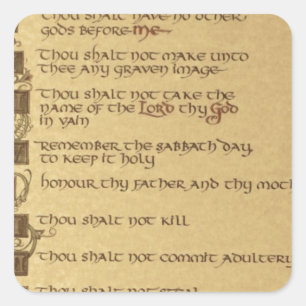 Thou shalt have no other
gods before me
Thou shalt not make unto
thee any graven image
Thou shalt not take the
name of the Lord thy God
in vain
Remember the sabbath day,
to keep it holy
honour thy father and thy moth
Thou shalt not kill
Thou shalt not commit adultery
Thou shalt not steal